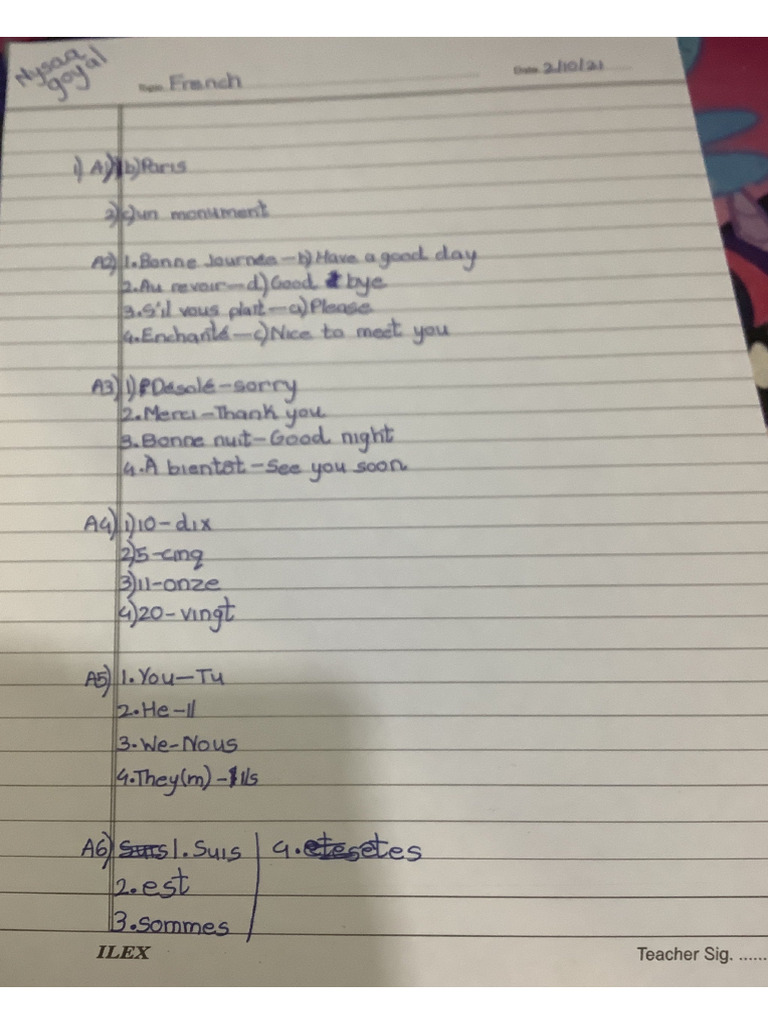 Nysaa
goyal
Date 2/10/21
French
1) A) 1 b) Paris
2) c) un monument
A2) 1. Bonne Journée - b) Have a good day
2. Au revoir - d) Good bye
3. S'il vous plaît - a) Please
4. Enchanté - c) Nice to meet you
A3) 1) Désolé - sorry
2. Merci - Thank you
3. Bonne nuit - Good night
4. À bientôt - See you soon
A4) 1) 10 - dix
2) 5 - cinq
3) 11 - onze
4) 20 - vingt
A5) 1. You - Tu
2. He - Il
3. We - Nous
4. They (m) - Ils
A6) 1. Suis 4. etes
2. est
3. sommes
ILEX
Teacher Sig. ......